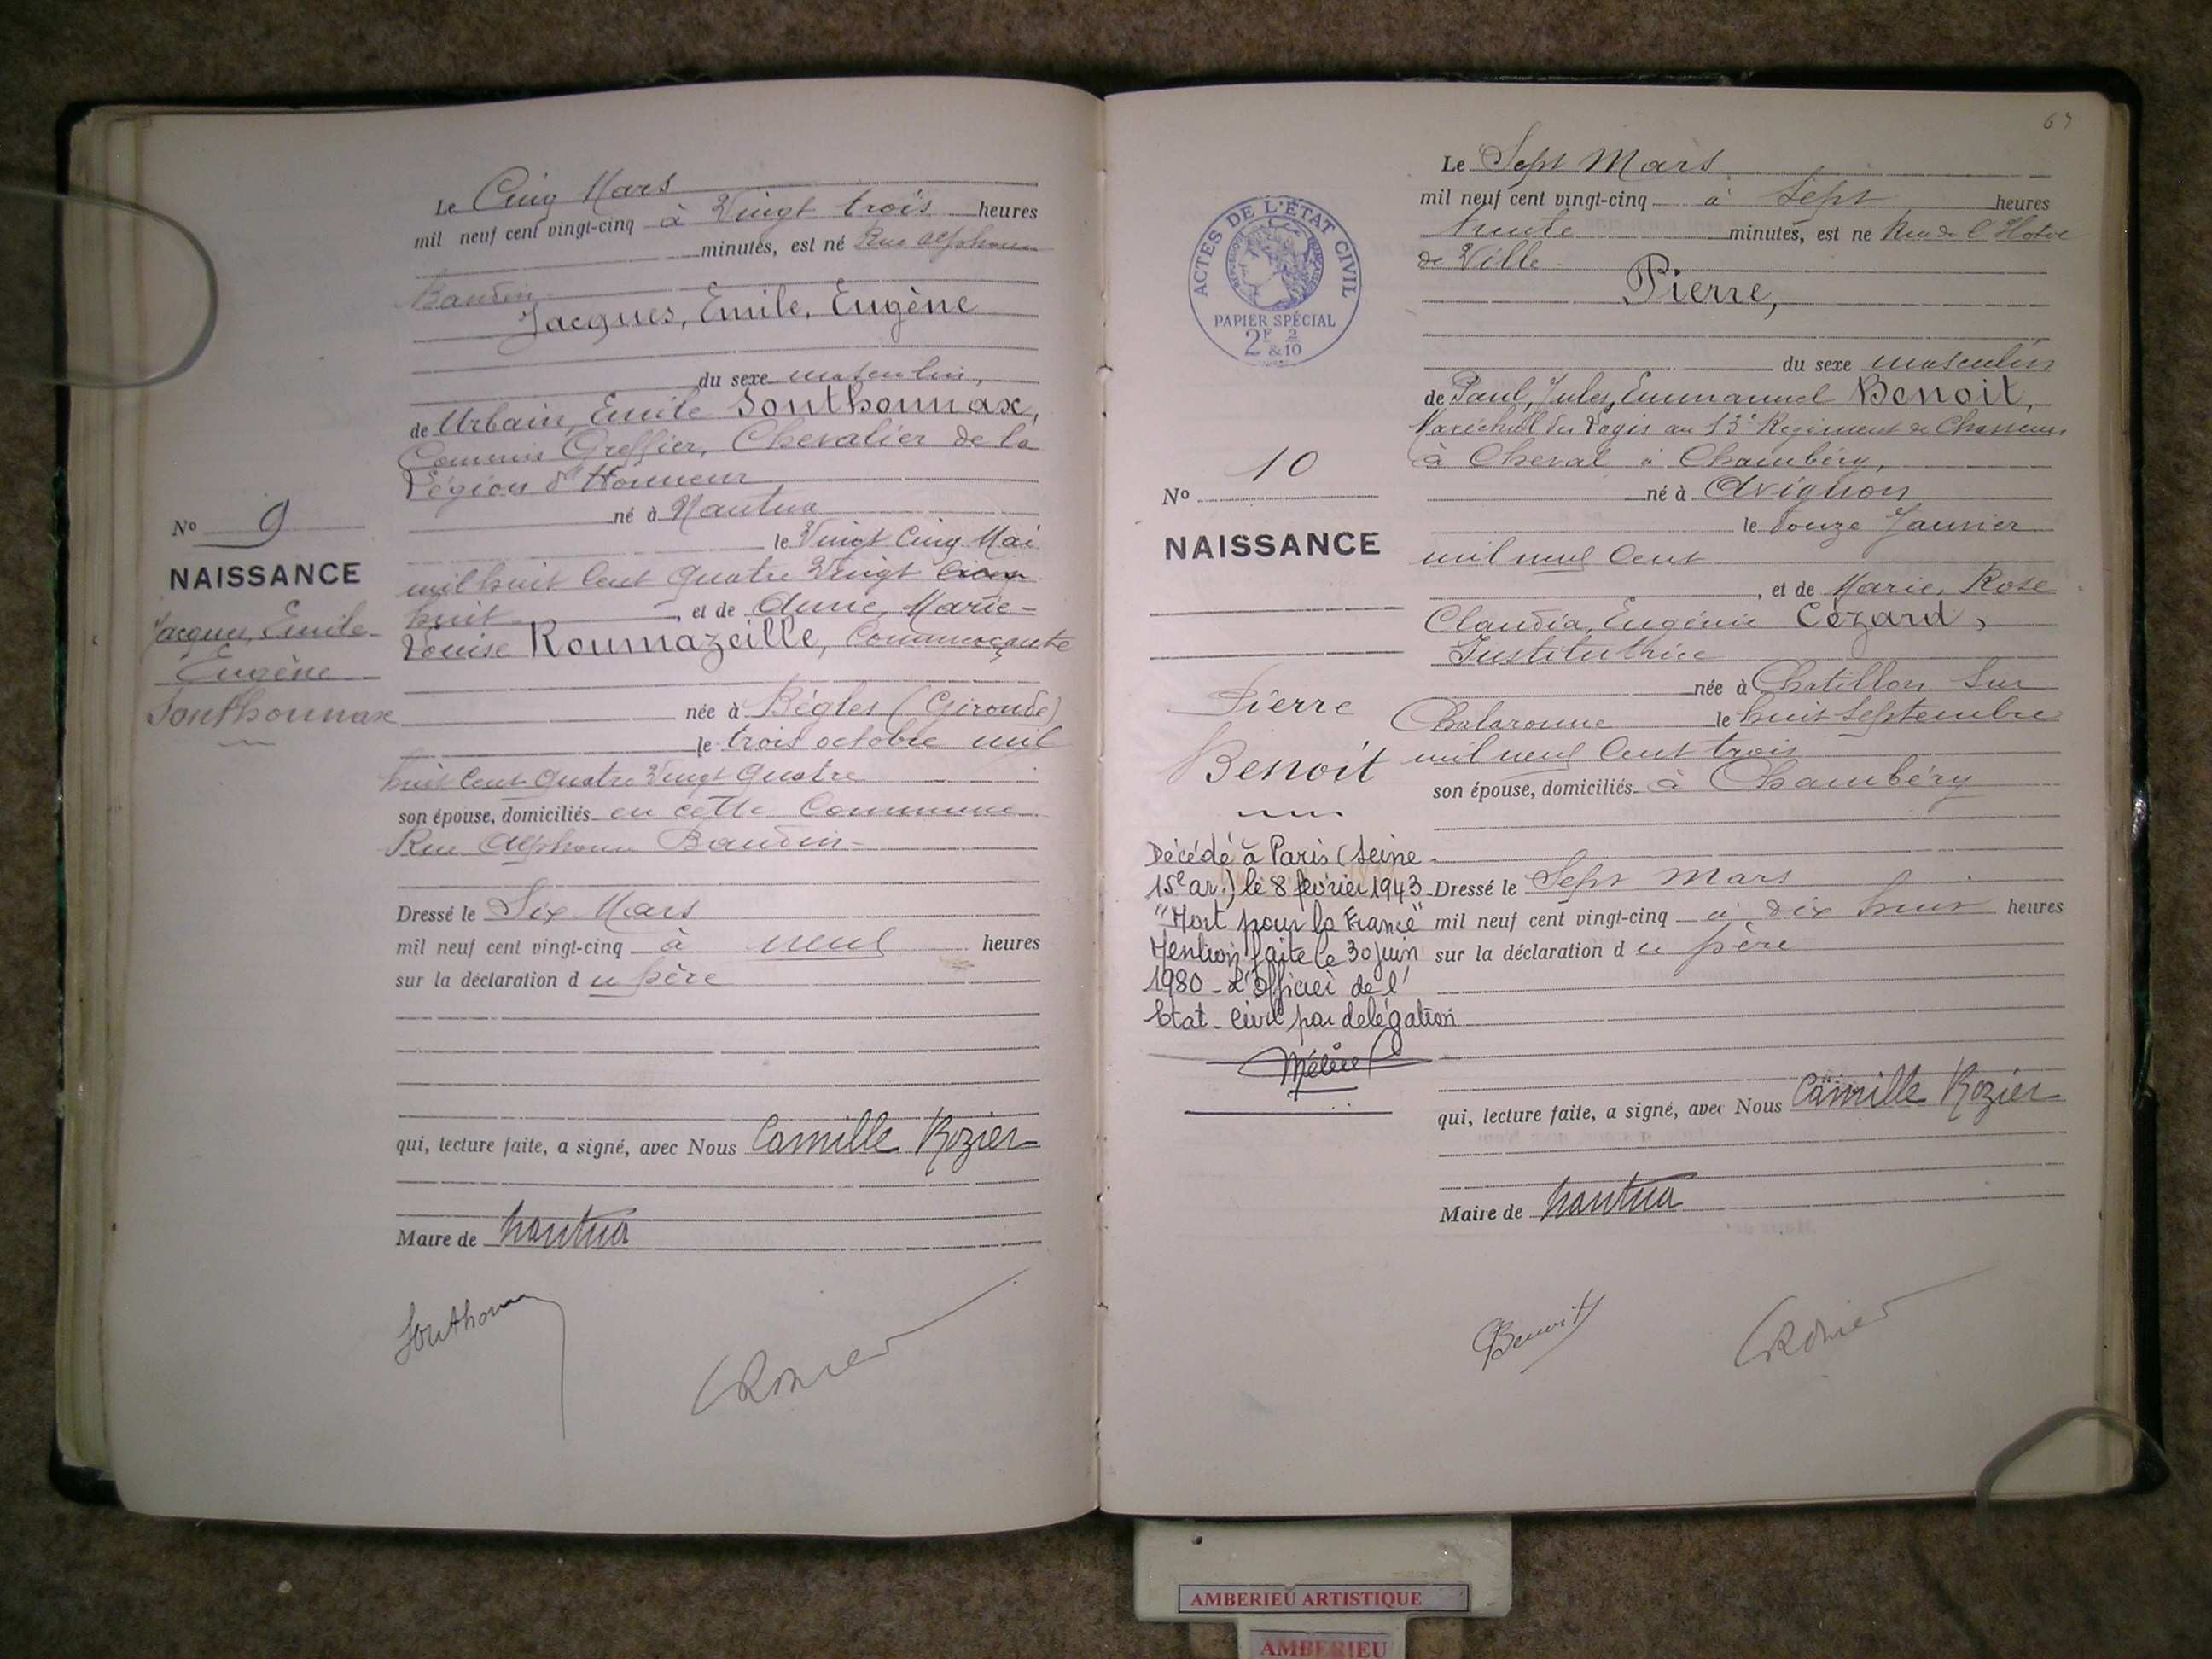 Le Cinq Mars
mil neuf cent vingt-cinq à Vingt trois heures
minutes, est né Rue Alphonse
Baudin
Jacques, Emile, Eugène
du sexe masculin,
de Urbain, Emile Sonthonnax,
Commis Greffier, Chevalier de la
Légion d'Honneur
né à Nantua
le Vingt Cinq Mai
mil huit Cent Quatre Vingt
huit, et de Anne, Marie-
Louise Roumazeille, Commerçante
née à Bègles (Gironde)
le trois octobre mil
huit Cent Quatre Vingt Quatre
son épouse, domiciliés en cette Commune
Rue Alphonse Baudin
Dressé le Six Mars
mil neuf cent vingt-cinq à neuf heures
sur la déclaration du père
qui, lecture faite, a signé, avec Nous Camille Rozier
Maire de Nantua
Sonthonnax
CRozier
No 9
NAISSANCE
Jacques, Emile
Eugène
Sonthonnax
Le Sept Mars
mil neuf cent vingt-cinq à Sept heures
trente minutes, est né Rue de l'Hotel
de Ville
Pierre,
du sexe masculin
de Paul, Jules, Emmanuel Benoit,
Maréchal des Logis au 13e Régiment de Chasseurs
à Cheval à Chambéry,
né à Avignon
le Douze Janvier
mil neuf Cent
, et de Marie, Rose
Claudia, Eugénie Cézard,
Institutrice
née à Chatillon Sur
Chalaronne le huit Septembre
mil neuf Cent trois
son épouse, domiciliés à Chambéry
Dressé le Sept Mars
mil neuf cent vingt-cinq à dix huit heures
sur la déclaration du père
qui, lecture faite, a signé, avec Nous Camille Rozier
Maire de Nantua
Benoit
CRozier
ACTES DE L'ÉTAT CIVIL
RÉPUBLIQUE FRANÇAISE
PAPIER SPÉCIAL
2F 2
&10
No 10
NAISSANCE
Pierre
Benoit
Décédé à Paris (Seine
15e ar.) le 8 février 1943
"Mort pour la France"
Mention faite le 30 juin
1980 - L'Officier de l'
Etat-Civil par delégation
AMBERIEU ARTISTIQUE
AMBERIEU